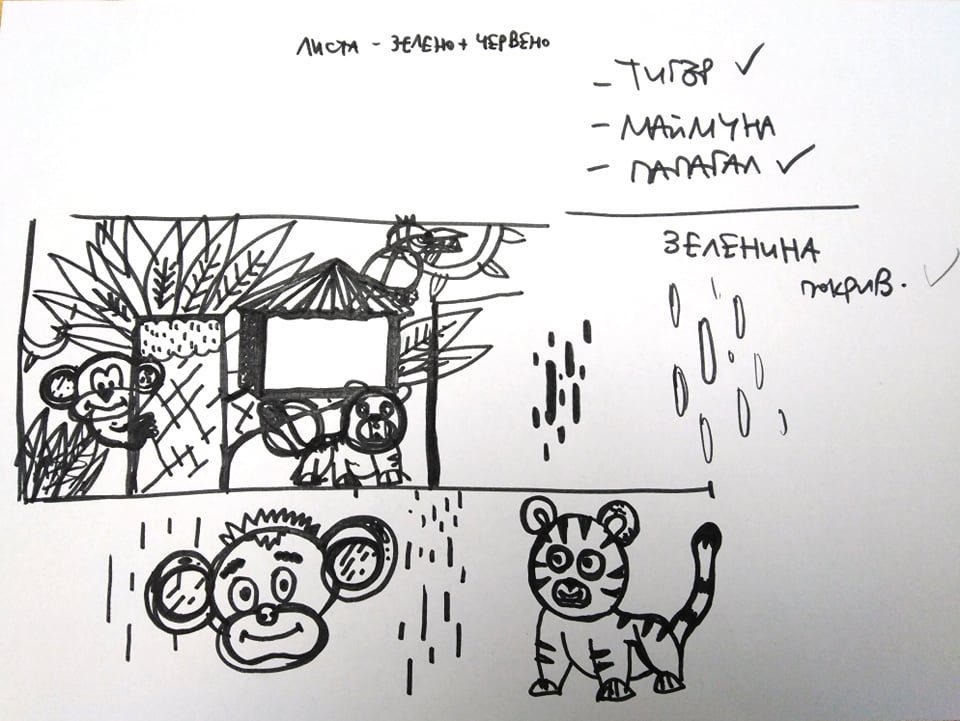 ЛИСТА - ЗЕЛЕНО + ЧЕРВЕНО
- ТИГЪР ✓
- МАЙМУНА
- ПАПАГАЛ ✓
ЗЕЛЕНИНА
покрив. ✓